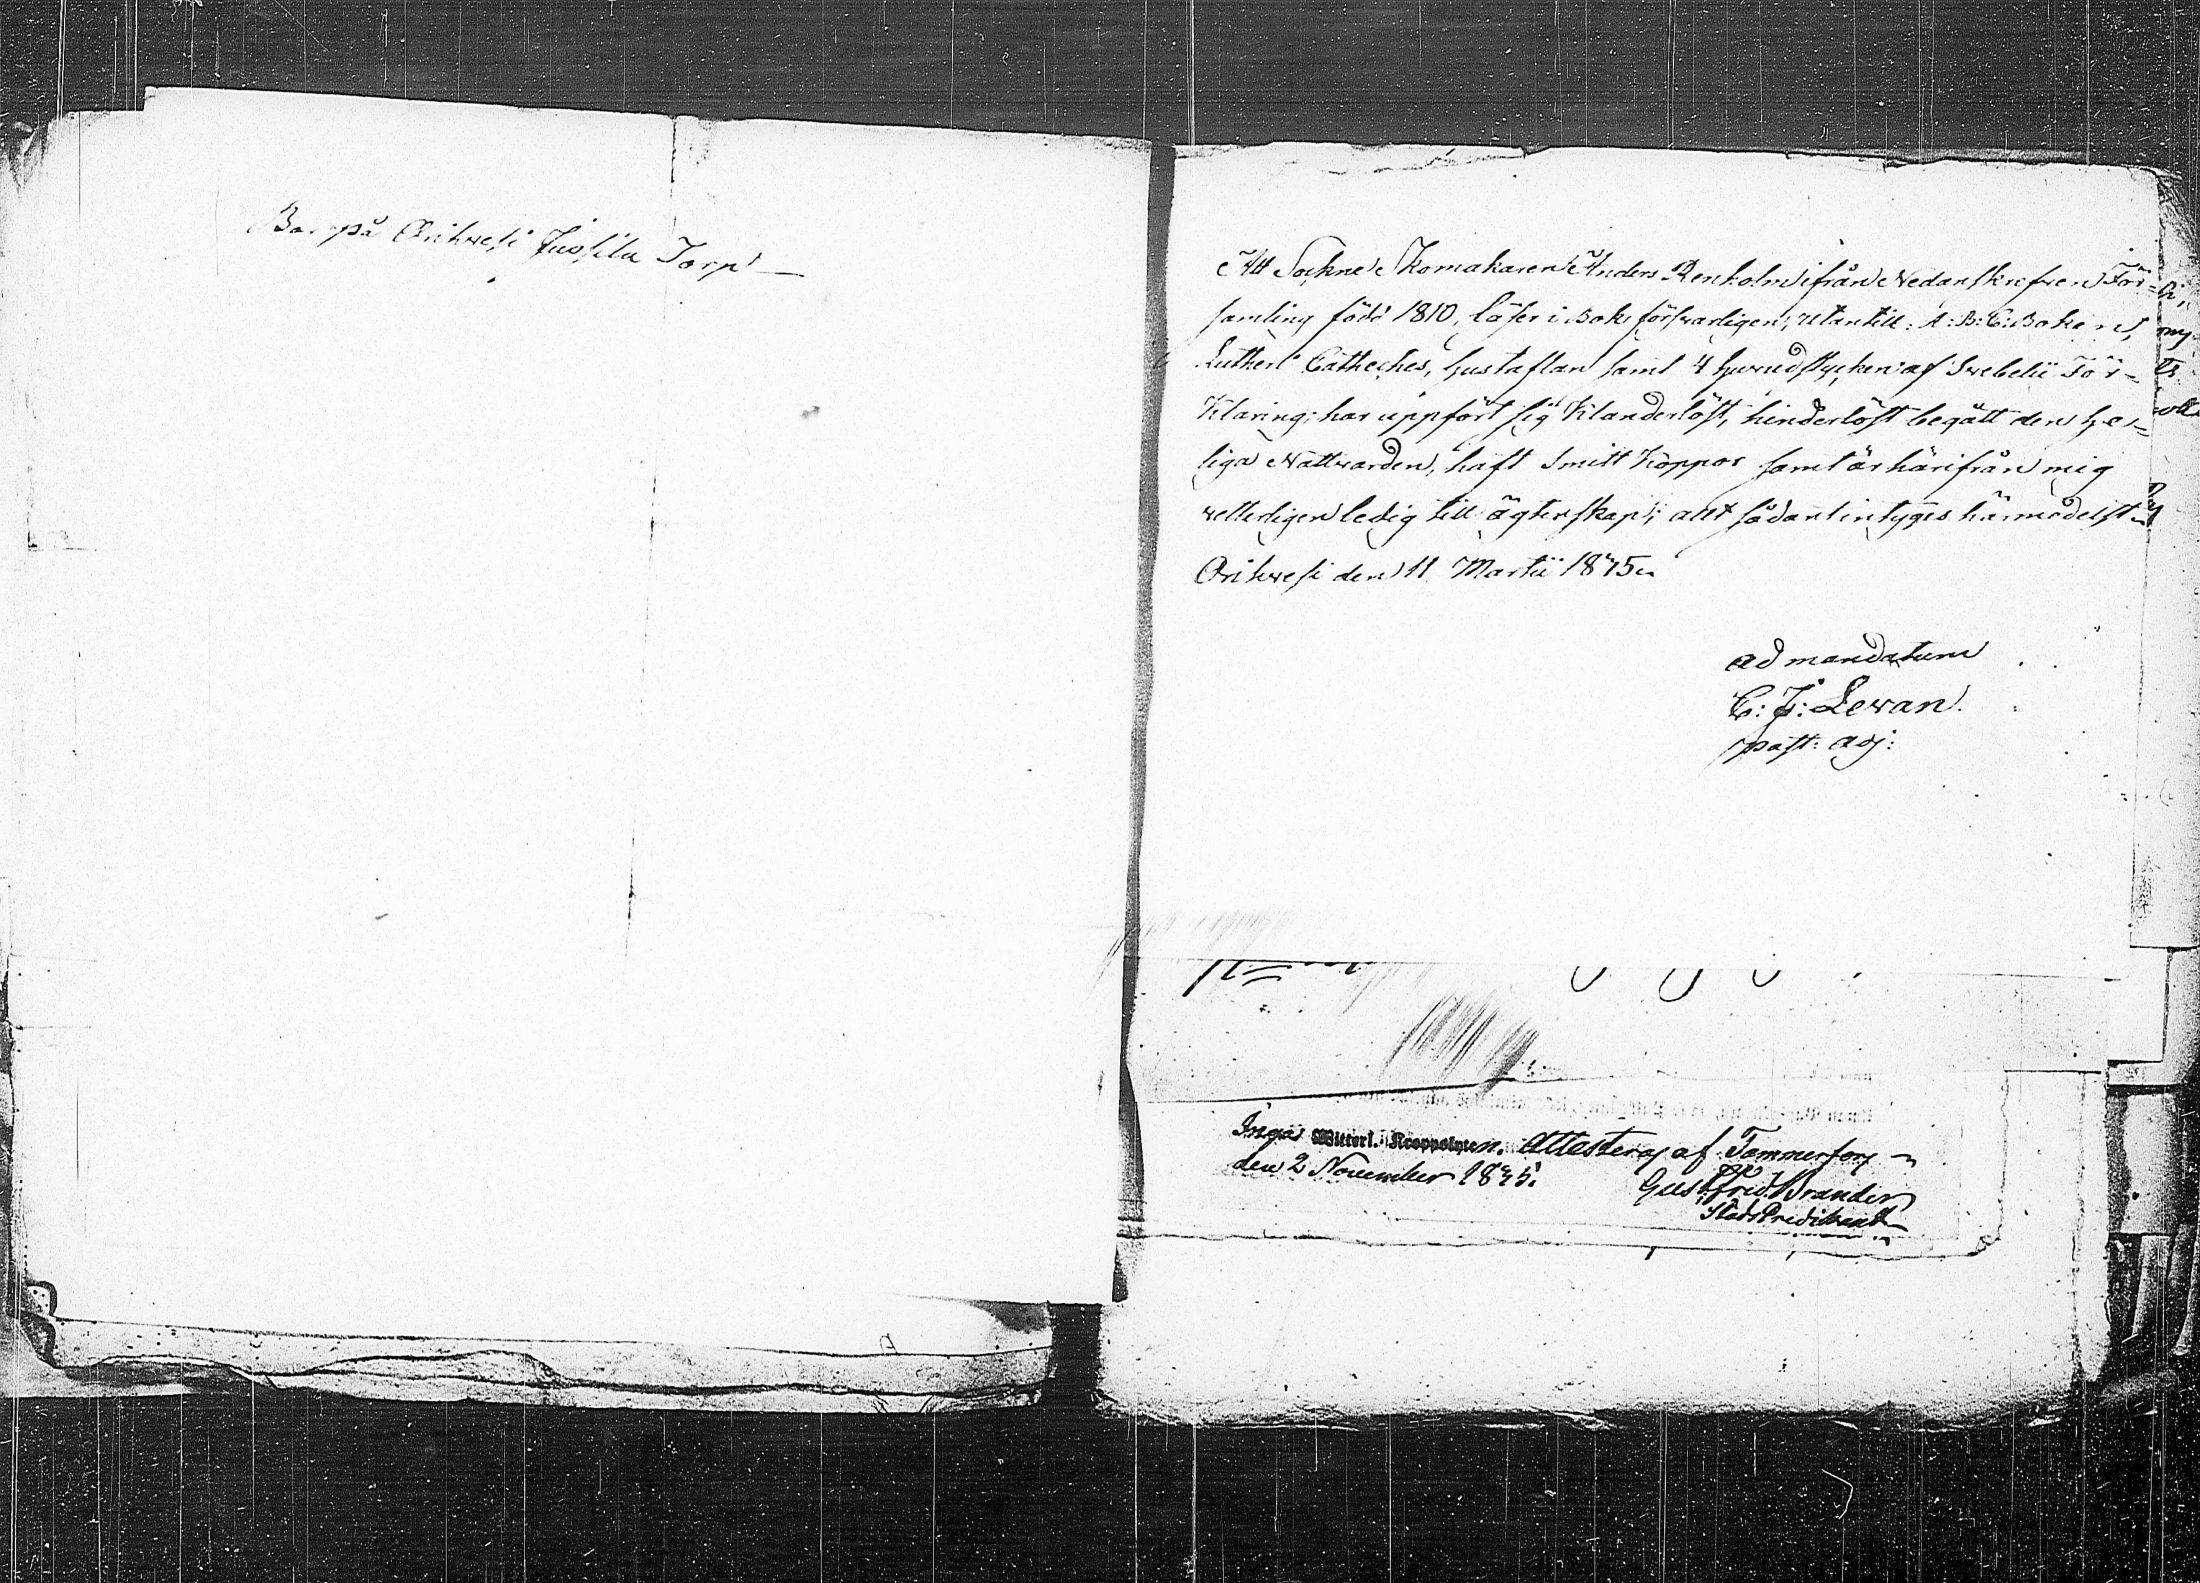 Bor på Orihvesi Jussila Torp
Att Sockne Skomakaren Anders Renholm ifrån Nedanskrefven För-
samling född 1810, läser i Bok försvarligen, utantill: A: B: C: Boken,
Lutheri Catheches, Hustaflan samt 4 Huvudstycken af Svebelii För-
klaring; har uppfört sig klanderlöst, hinderlöst begått den He-
liga Nattvarden, haft Smitt Koppor samt är härifrån mig
vetterligen ledig till ägtenskap; allt sådant intyges härmedelst
Orihvesi den 11 Martii 1845
ad mandatum
C: J: Levan
past: adj:
Attesteras af Tammerfors
den 2 November 1845.
Gust. Frid. Brander
Stads Predikant